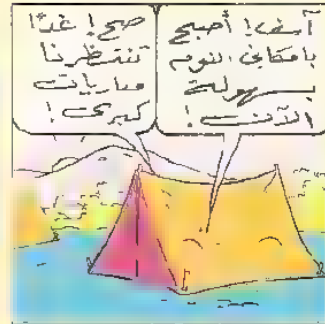 آسف! أصبح
بإمكاني النوم
بسهولة
الآن!
صح! غدًا
تنتظرنا
مباريات
كبرى!